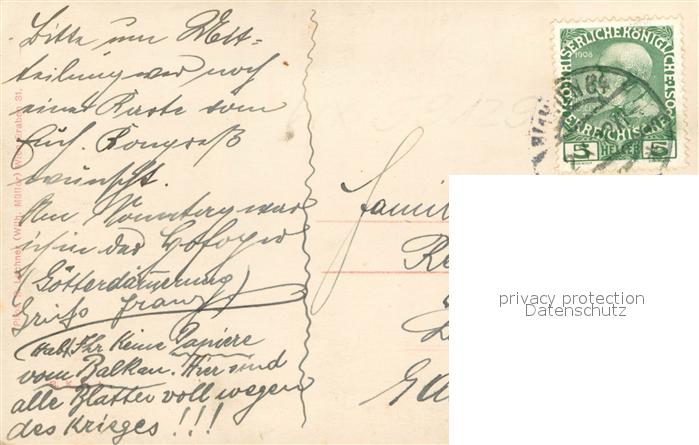 Bitte um Mit-
teilung wer noch
eine Karte vom
Euch. Kongreß
wünscht.
Am Sonntag war
ich in der Hofoper
(Götterdämerung)
Gruß Franz
Habt Ihr Keine Papiere
vom Balkan. Hier sind
alle Blätter voll wegen
des Krieges !!!
(Wilh. Müller) Wien, Graben 31.
KAISERLICHE KÖNIGLICHE
ÖSTERREICHISCHE
1908
5 HELLER 5
WIEN
Famil
privacy protection
Datenschutz